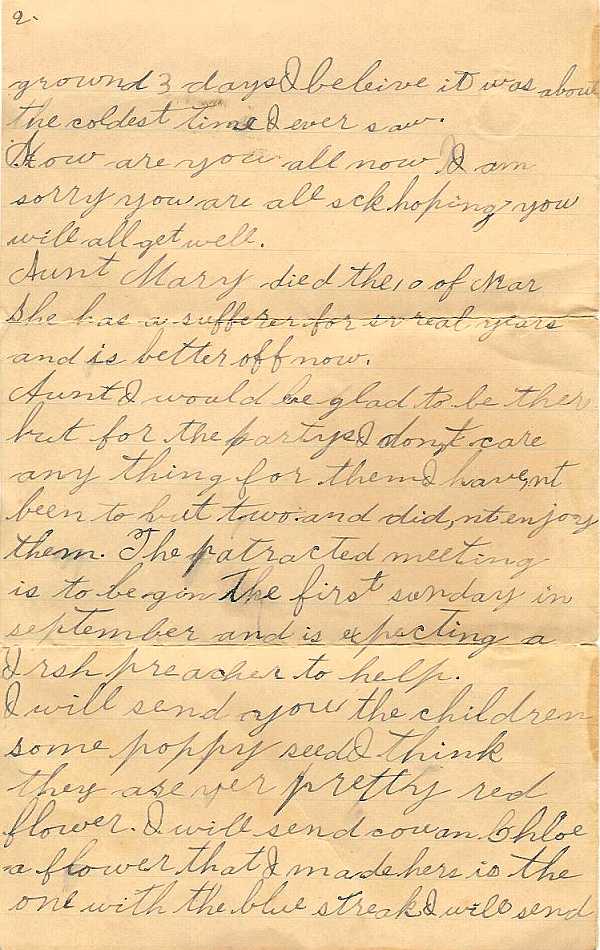 2.
grownd 3 days I beleive it was about
the coldest time I ever saw.
How are you all now I am
sorry you are all sck hoping you
will all get well.
Aunt Mary died the 10 of Mar
She has a sufferer for sv real years
and is better off now.
Aunt I would be glad to be ther
but for the partys I don,t care
any thing for them I have,nt
been to but two. and did,nt enjoy
them. The patracted meeting
is to begin The first sunday in
september and is expecting a
Irsh preacher to help.
I will send you the children
some poppy seed I think
they are ver pretty red
flower. I will send cousan Chloe
a flower that I made hers is the
one with the blue streak I will send